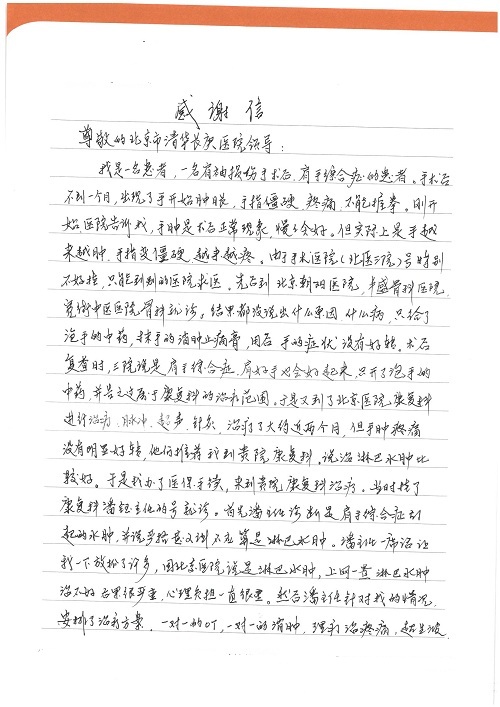 感谢信
尊敬的北京市清华长庚医院领导：
我是一名患者，一名有袖损伤手术后，肩手综合症的患者。手术后
不到一个月，出现了手开始肿胀，手指僵硬，疼痛，不能握拳。刚开
始医院告诉我，手肿是术后正常现象，慢慢会好。但实际上是手越
来越肿，手指变僵硬，越来越疼。由于手术医院（北医三院）号特别
不好挂，只能到别的医院求医。先后到北京朝阳医院，丰盛骨科医院，
宽街中医医院骨科就诊，结果都没说出什么原因 什么病，只给了
泡手的中药，抹手的消肿止痛膏，用后 手的症状 没有好转。术后
复查时，三院说是肩手综合症，肩好手也会好起来，只开了泡手的
中药，并告之这属于康复科的治疗范围。于是又到了北京医院康复科
进行治疗，脉冲，超声，针灸，治疗了大约近两个月，但手肿疼痛
没有明显好转，他们推荐我到贵院康复科，说治淋巴水肿比
较好。于是我办了医保手续，来到贵院康复科治疗。当时挂了
康复科潘钰主任的号就诊。首先潘主任诊断是肩手综合症引
起的水肿，并说严格意义讲不算是淋巴水肿。潘主任一席话让
我一下放松了许多，因北京医院说是淋巴水肿，上网一查淋巴水肿
治不好 后果很严重，心理负担一直很重。然后潘主任针对我的情况，
安排了治疗方案，一对一的OT，一对一的消肿，理疗治疼痛，超声波，